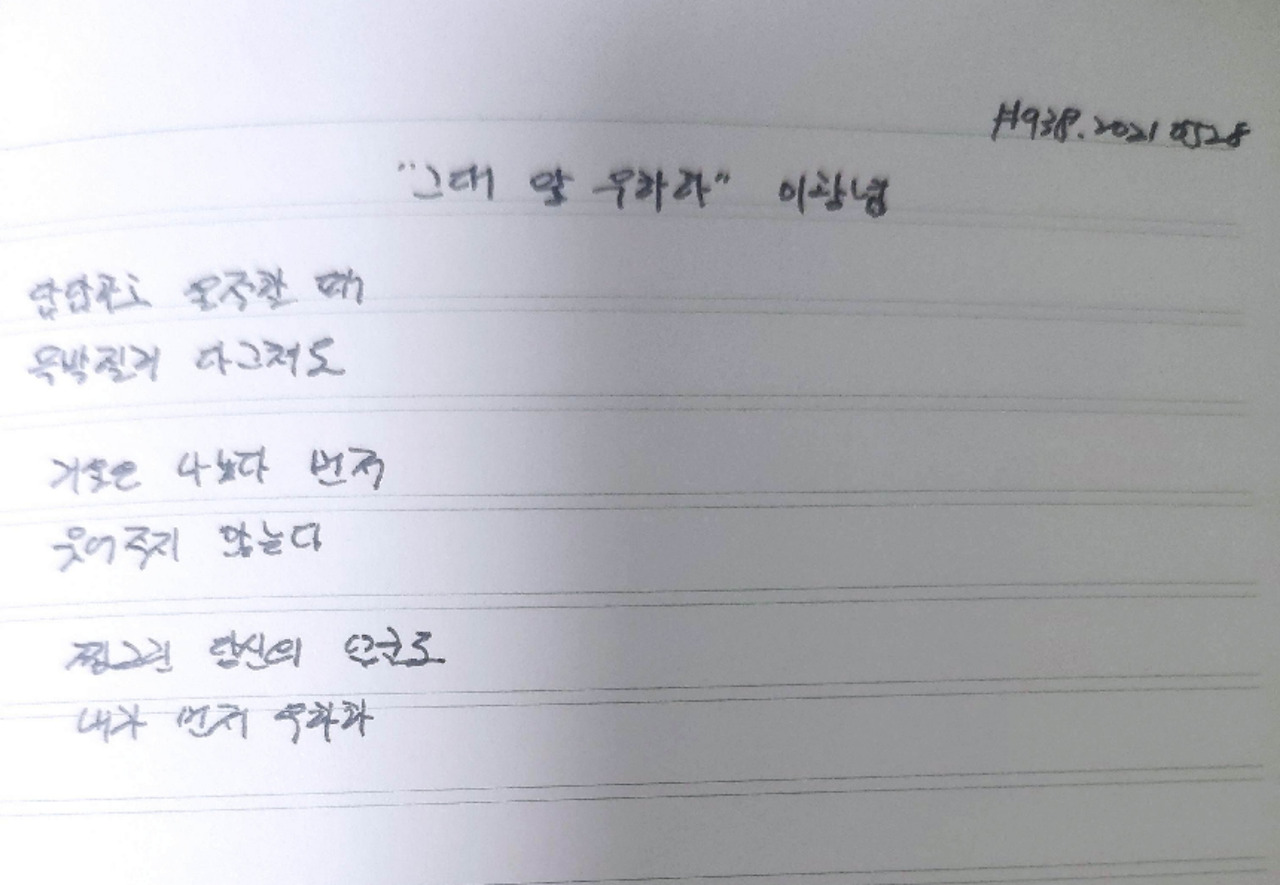 #938. 2021 0528
"그대 앞 우하하" 이창녕
답답하고 오죽할 때
윽박질러 다그쳐도
거울은 나보다 먼저
웃어주지 않는다
찡그린 당신의 얼굴도
내가 먼저 우하하